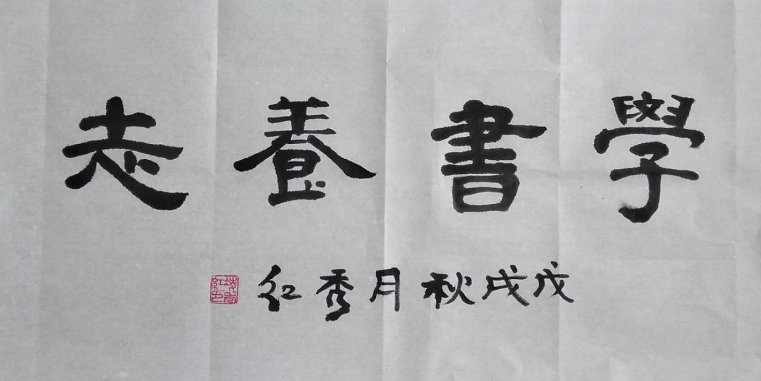 學書養志
戊戌秋月秀红